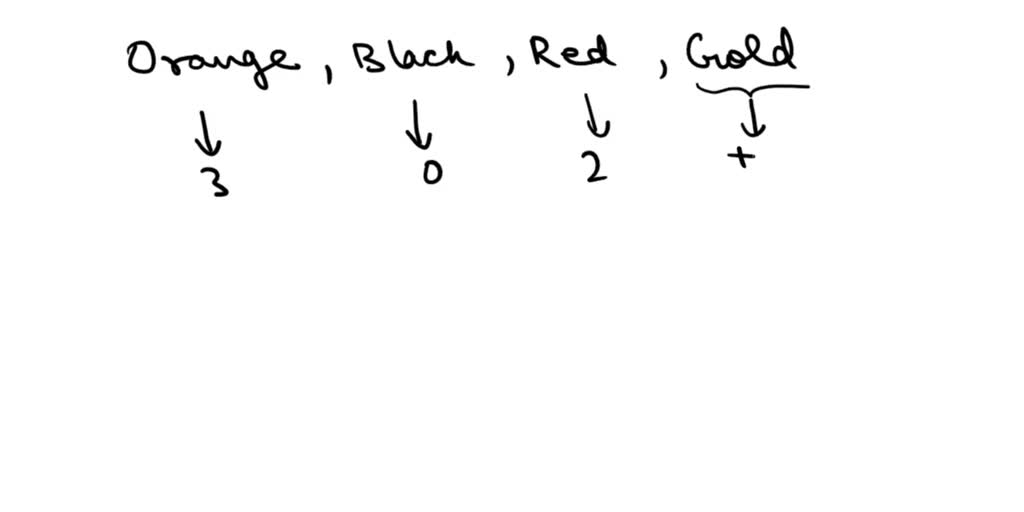 Orange, Black, Red, Gold
3 0 2 +